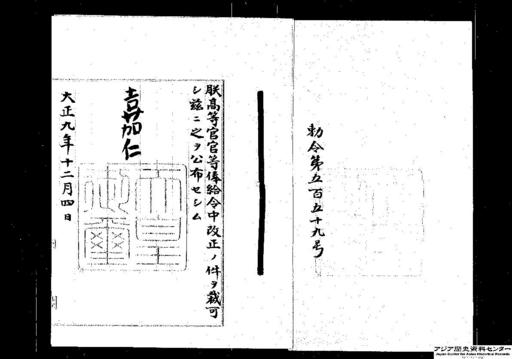 勅令第五百五十九号
朕高等官官等俸給令中改正ノ件ヲ裁可
シ玆ニ之ヲ公布セシム
嘉仁
天皇御璽
大正九年十二月四日
アジア歴史資料センター
Japan Center for Asian Historical Records